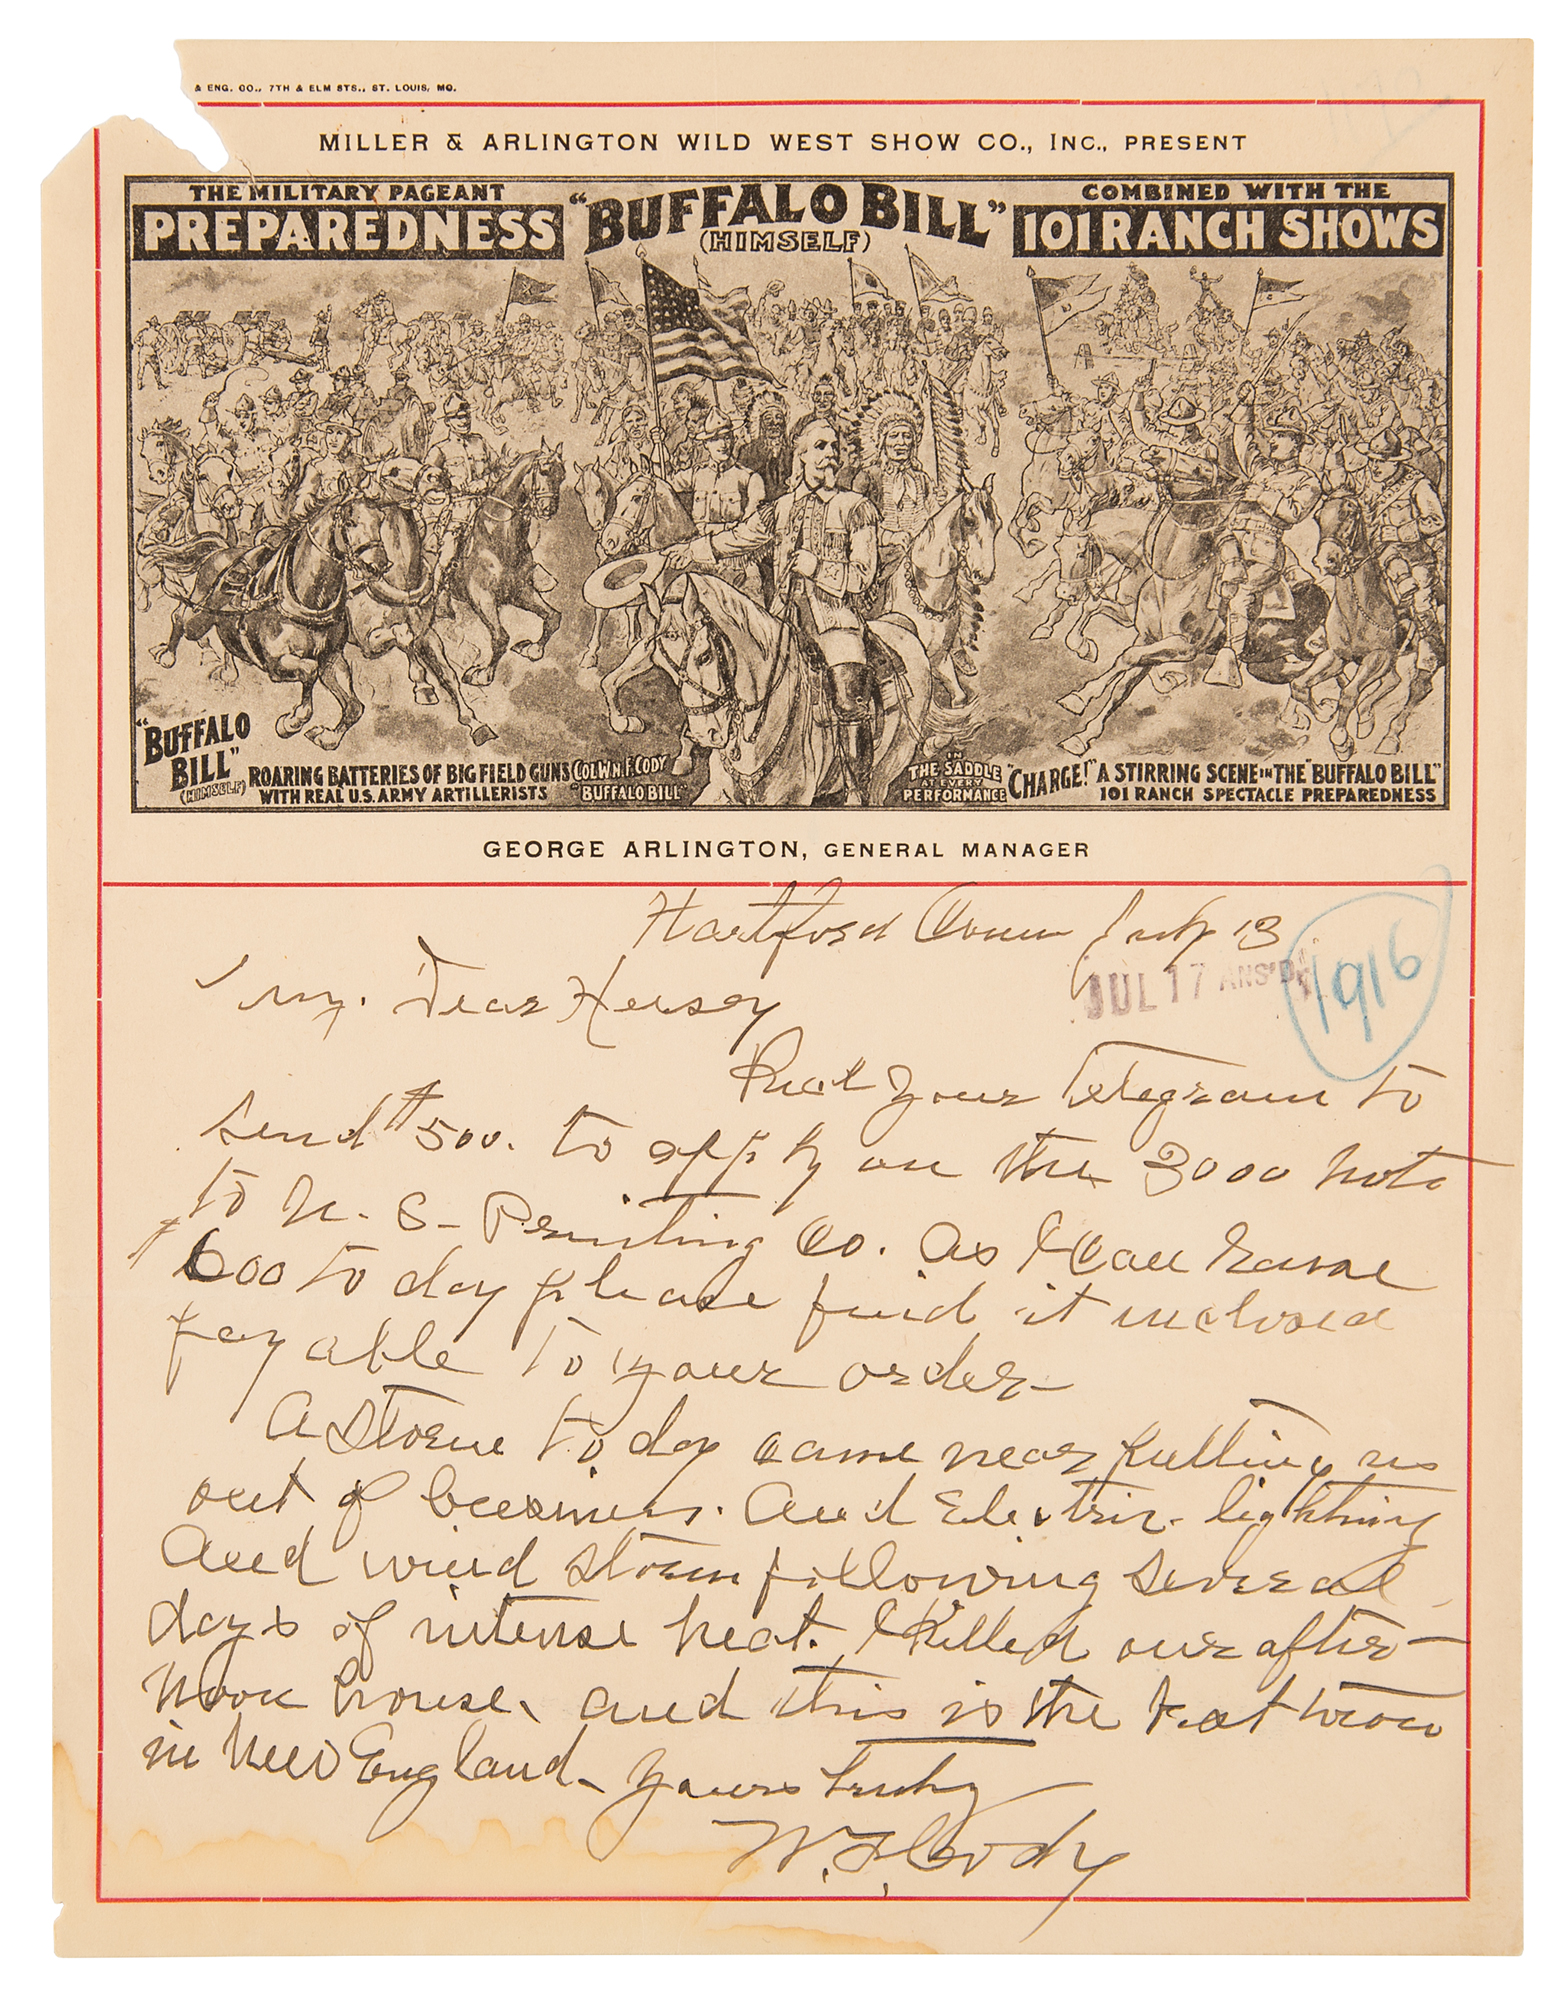 & ENG. CO., 7TH & ELM STS., ST. LOUIS, MO.
MILLER & ARLINGTON WILD WEST SHOW CO., INC., PRESENT
THE MILITARY PAGEANT
PREPAREDNESS
"BUFFALO BILL"
(HIMSELF)
COMBINED WITH THE
101 RANCH SHOWS
"BUFFALO
BILL"
(HIMSELF)
ROARING BATTERIES OF BIG FIELD GUNS
WITH REAL U.S. ARMY ARTILLERISTS
COL. WM. F. CODY
"BUFFALO BILL"
IN
THE SADDLE
AT EVERY
PERFORMANCE
"CHARGE!" A STIRRING SCENE IN THE "BUFFALO BILL"
101 RANCH SPECTACLE PREPAREDNESS
GEORGE ARLINGTON, GENERAL MANAGER
Hartford Conn July 13
JUL 17 ANS'D
1916
My. Dear Hersey
Recd your Telegram to
send $500. to apply on the 3000 note
to U. S- Printing Co. as I Can have
$600 to day please find it inclosed
payable to your order-
A Storm to day came near putting us
out of business. And Electric. lightning
And wind storm following several
days of intense heat. I Killed our after-
noon house, and this is the best town
in New England- yours truly
W. F. Cody